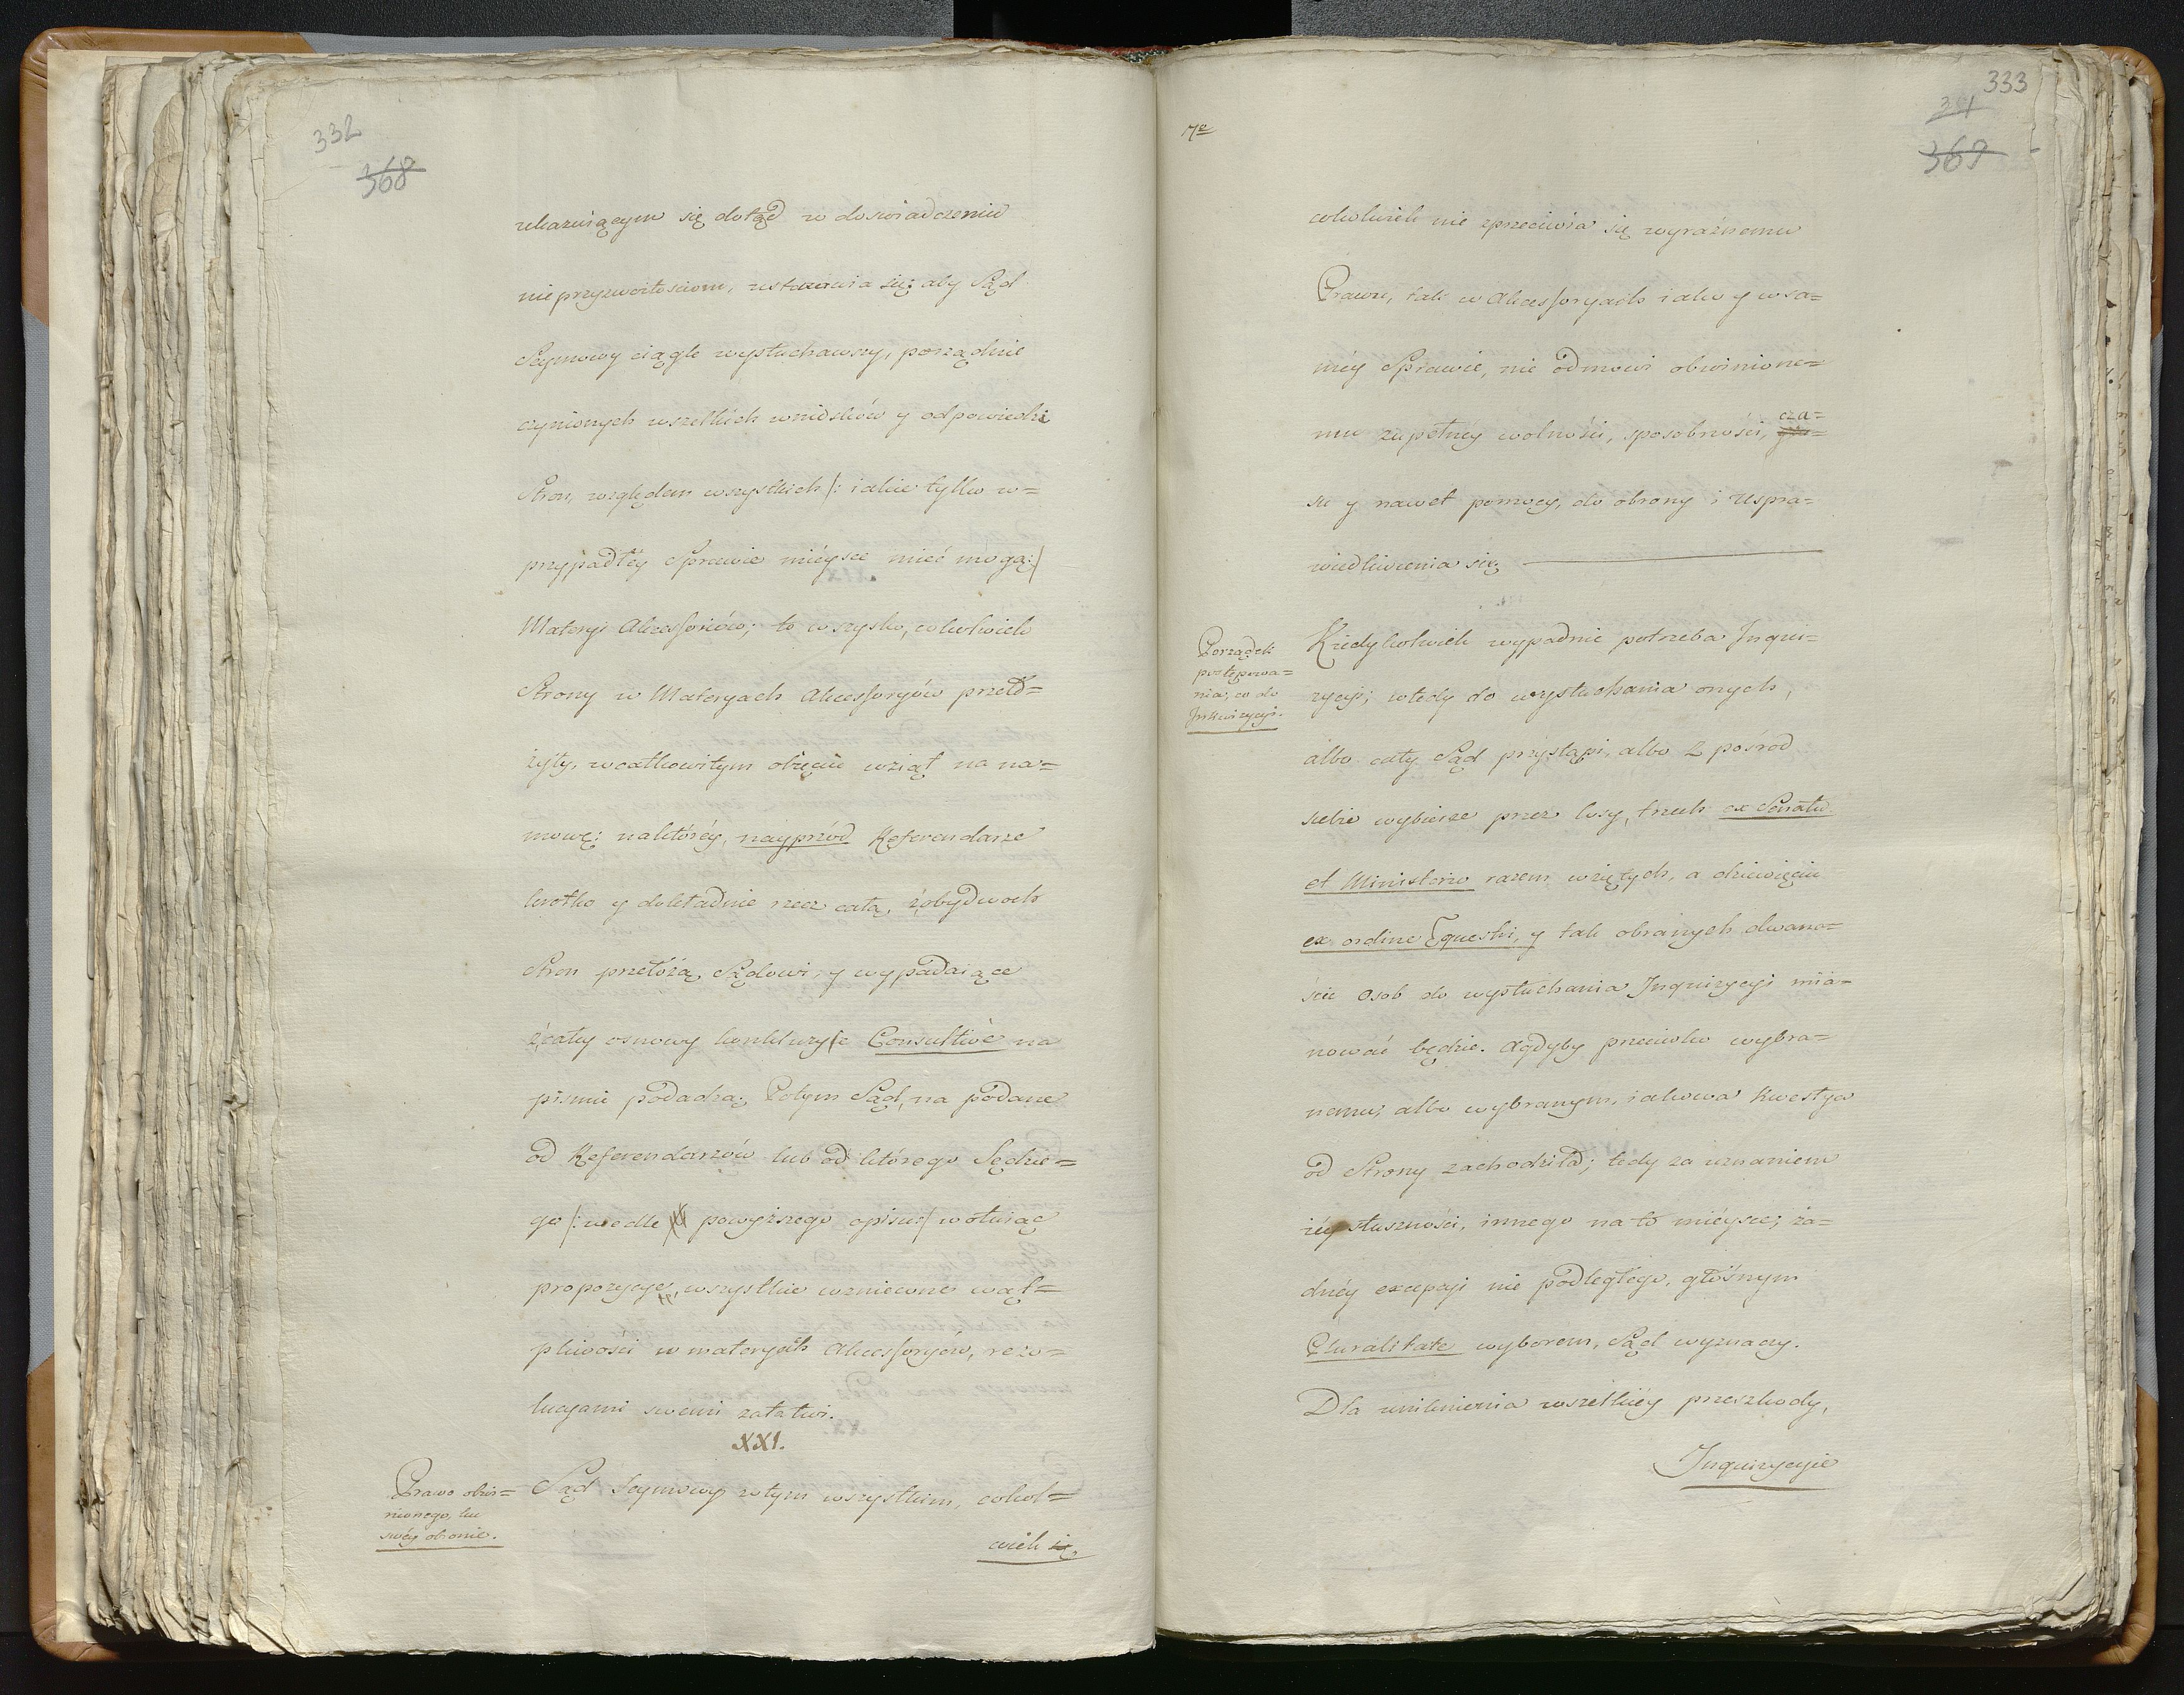 332
368
ukazuiącym się dotąd w doswiadczeniu
nieprzyzwoitosciom, ustanawia się; aby Sąd
Seymowy ciągle wysłuchawszy, porządnie
czynionych wszelkich wniosków y odpowiedzi
Stron, względem wszystkich /: iakie tylko w=
przypadłéy Sprawie miéysce mieć mogą :/
Materyi Akcessoriów; to wszysko, cokolwiek
Strony w Materyach Akcessoryów przeło=
żyły, w całkowitym obręcie wziął na na=
mowę: na któréy, nayprzód Referendarze
krotko y dokładnie rzecz całą, z obydwoch
Stron przełożą Sądowi, y wypadaiące
z całey osnowy konkluzye Consultivè na
pismie podadzą; Potym Sąd, na podane
od Referendarzów lub od którego Sędzie=
go /: wedle powyższego opisu :/ wotuiąc
propozycye, wszystkie wzniecone wąt=
pliwości w materyach Akcessoryów, rezo=
lucyami swemi załatwi.
XXI.
Prawo obwi=
nionego, ku
swéy obronie.
Sąd Seymowy w tym wszystkim, cokol=
wiek się
333
361
369
7e
cokolwiek nie zprzeciwia się wyraźnemu
Prawu, tak w Akcessoryach iako y w sa=
méy Sprawie, nie odmowi obwinione=
mu zupełney wolności, sposobności, cza=
su y nawet pomocy, do obrony i uspra=
wiedliwienia się.
Porządek
postępowa=
nia, co do
Inkwizycyi.
Kiedykolwiek wypadnie potrzeba Inqui=
zycyi; wtedy do wysłuchania onych,
albo cały Sąd przystąpi, albo z pośrod
siebie wybierze przez losy, trzech ex Senatu
et Ministerio razem wziętych, a dziewięciu
ex ordine Equestri, y tak obranych dwana=
ście Osob do wysłuchania Inquizycyi mia=
nować będzie. A gdyby przeciwko wybra=
nemu, albo wybranym, iakowa kwestya
od Strony zachodziła; tedy za uznaniem
iéy słuszności, innego na to miéysce, ża=
dnéy excepcyi nie podległego, głośnym
Pluralitate wyborem, Sąd wyznaczy.
Dla uniknienia wszelkiéy przeszkody,
Inquizycyie